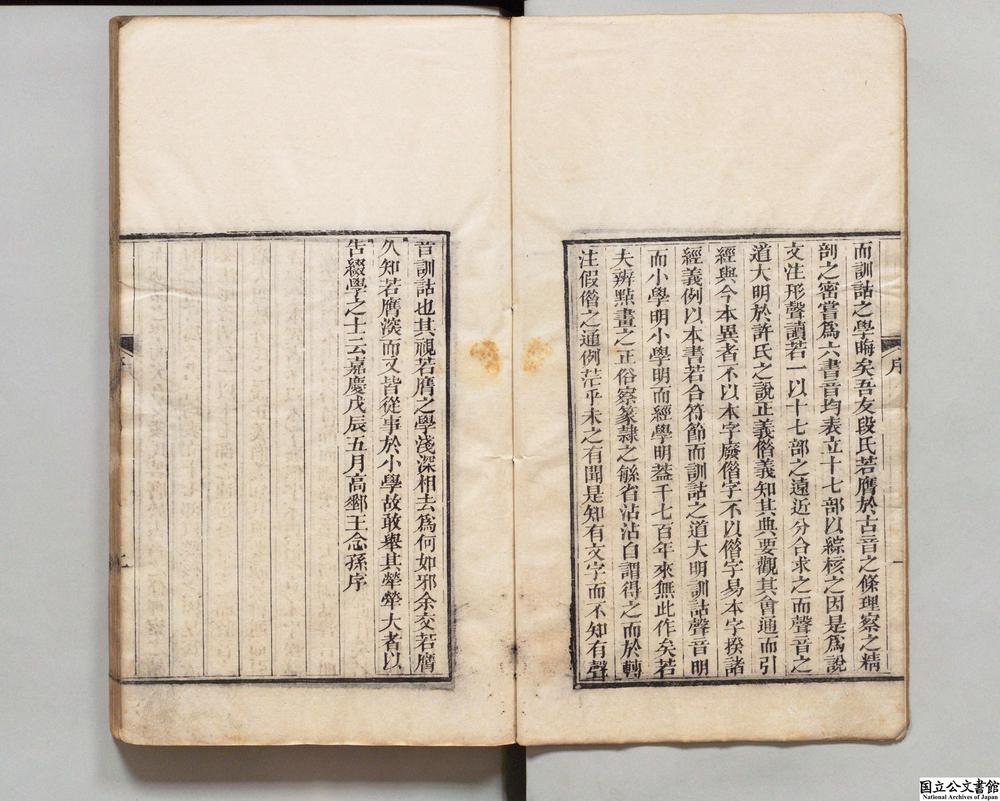 而訓詁之學晦矣吾友段氏若膺於古音之條理察之精
剖之密嘗爲六書音均表立十七部以綜核之因是爲說
文注形聲讀若一以十七部之遠近分合求之而聲音之
道大明於許氏之說正義借義知其典要觀其會通而引
經與今本異者不以本字廢借字不以借字易本字揆諸
經義例以本書若合符節而訓詁之道大明訓詁聲音明
而小學明小學明而經學明葢千七百年來無此作矣若
夫辨點畫之正俗察篆隷之緐省沾沾自謂得之而於轉
注假借之通例茫乎未之有聞是知有文字而不知有聲
音訓詁也其視若膺之學淺深相去爲何如邪余交若膺
久知若膺湥而又皆從事於小學故敢舉其犖犖大者以
告綴學之士云嘉慶戊辰五月高郵王念孫序
序
国立公文書館
National Archives of Japan